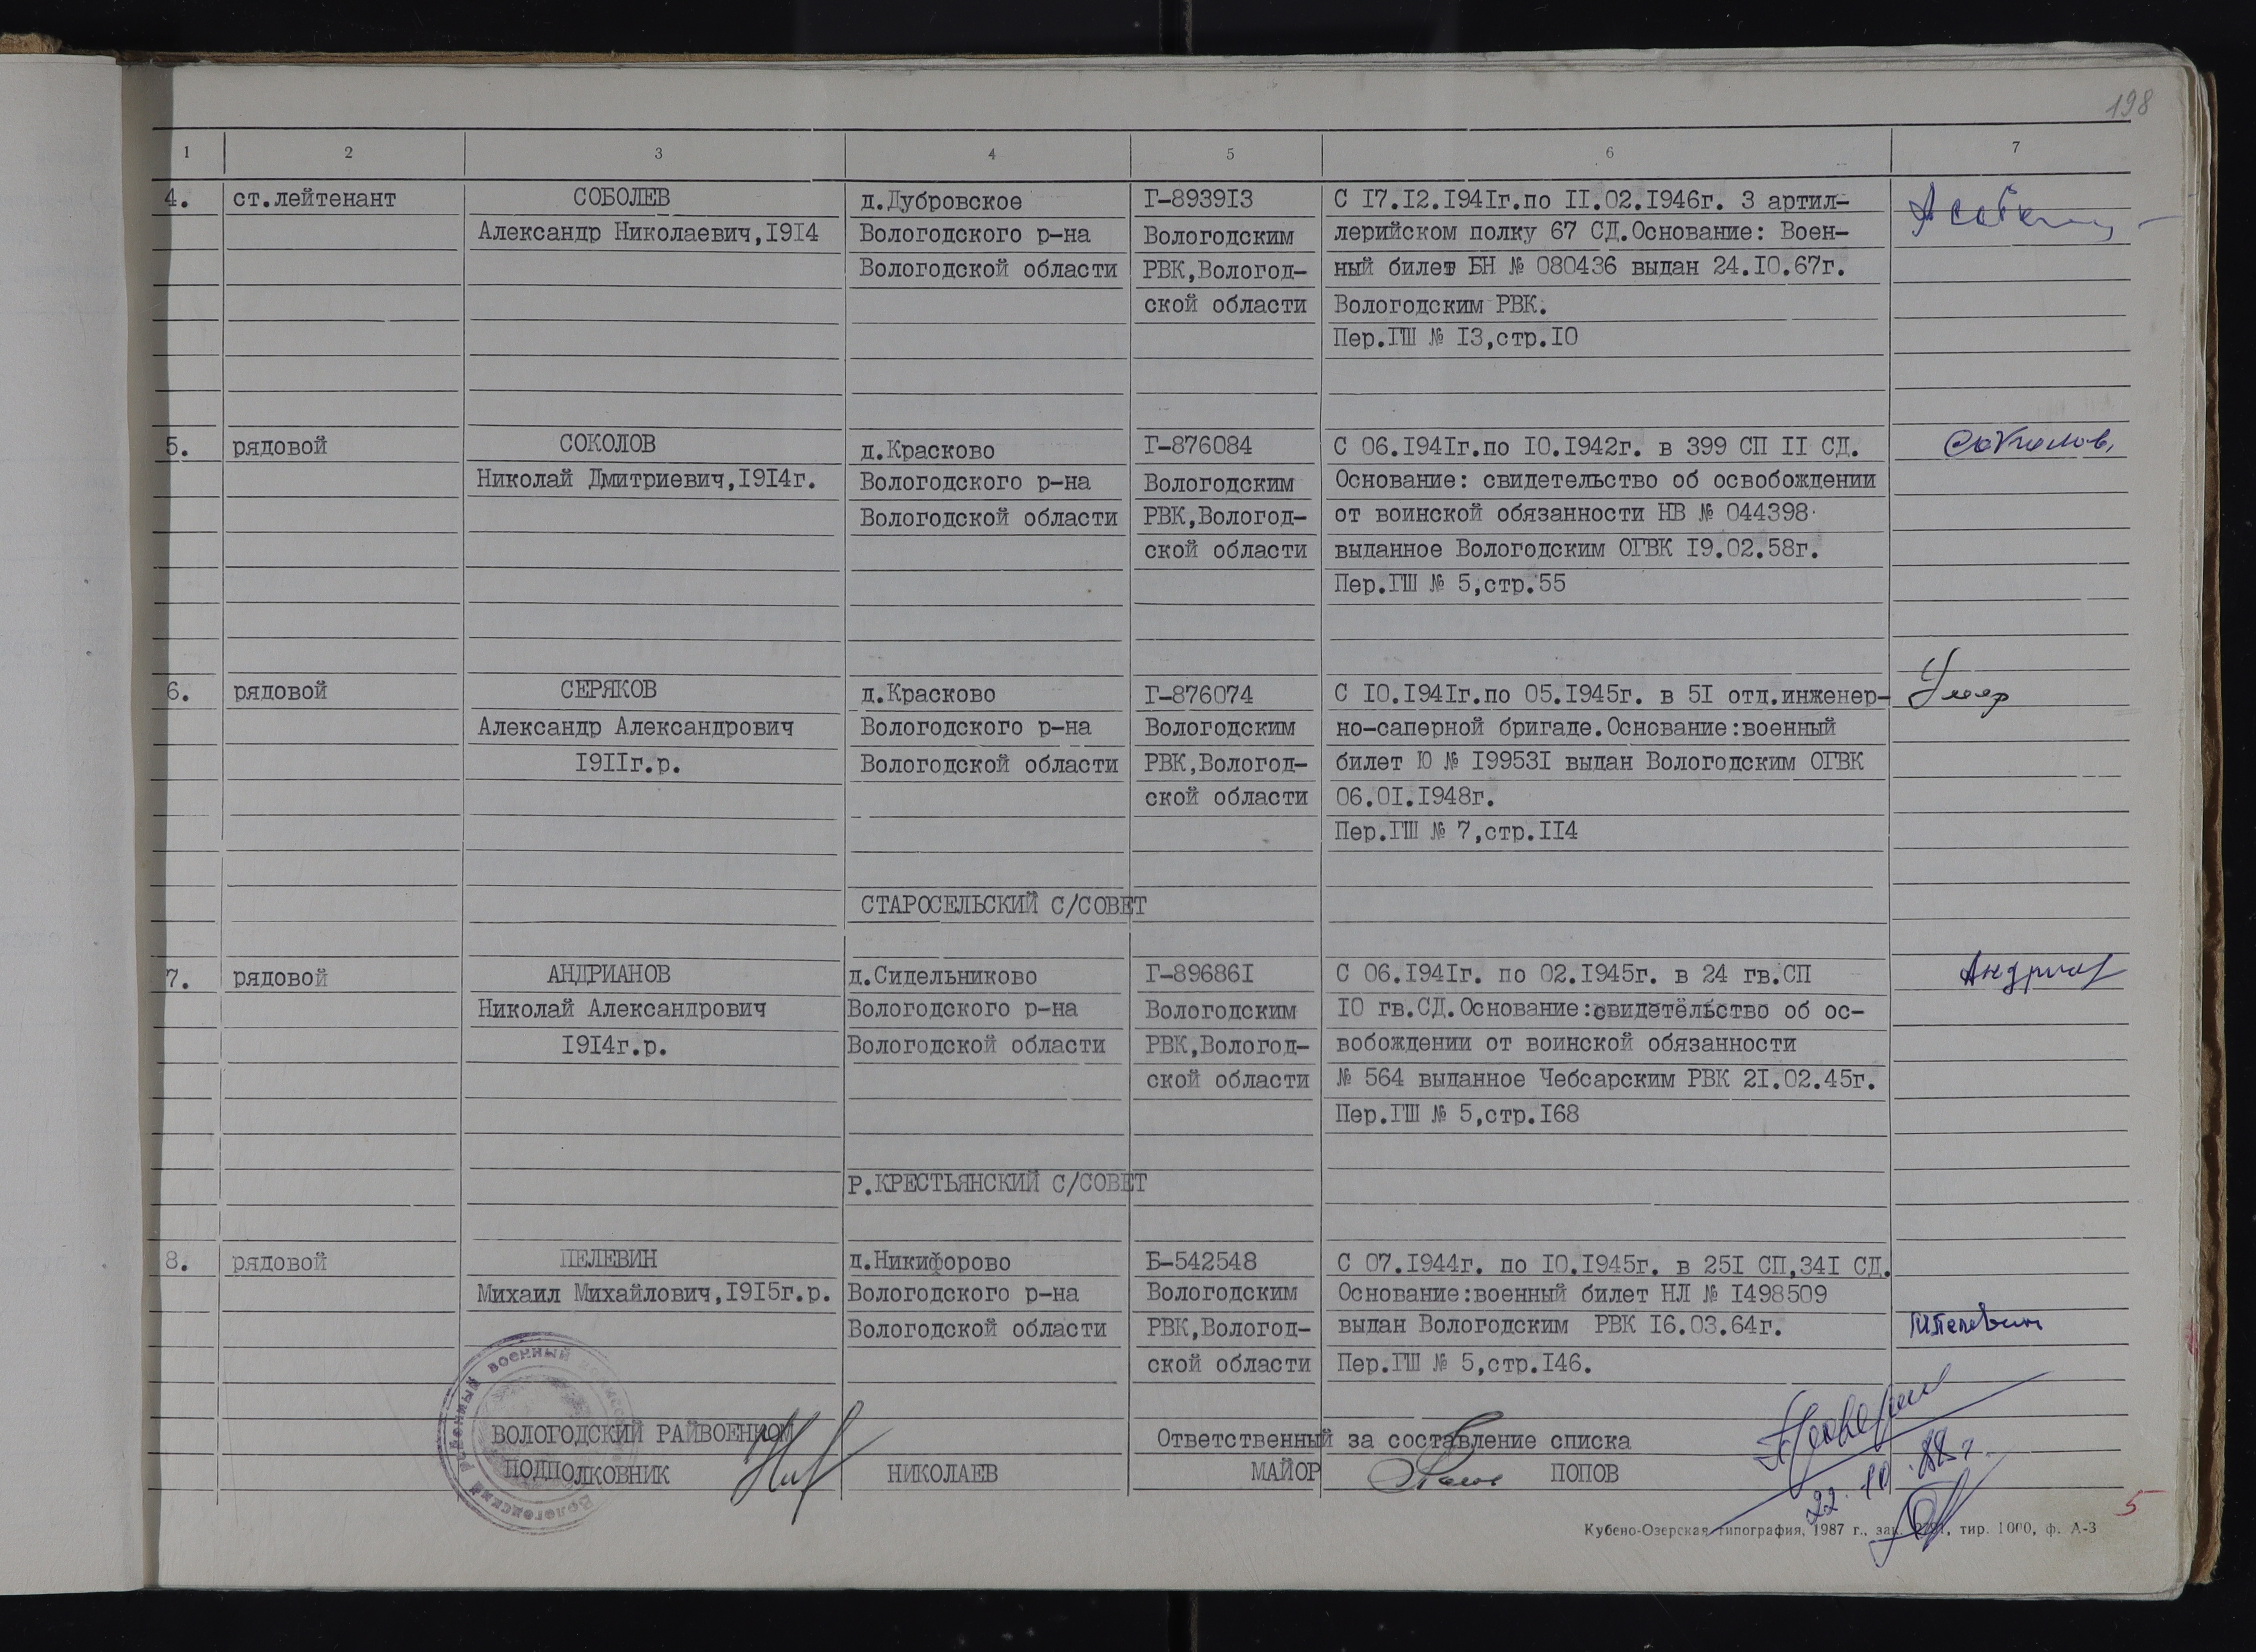 198
1 2 3 4 5 6 7
4. ст.лейтенант СОБОЛЕВ д.Дубровское Г-893913 С 17.12.1941г.по 11.02.1946г. 3 артил-
Александр Николаевич,1914 Вологодского р-на Вологодским лерийском полку 67 СД.Основание: Воен-
Вологодской области РВК,Вологод- ный билет БН № 080436 выдан 24.10.67г.
ской области Вологодским РВК.
Пер.ГШ № 13,стр.10
5. рядовой СОКОЛОВ д.Красково Г-876084 С 06.1941г.по 10.1942г. в 399 СП 11 СД. Соколов
Николай Дмитриевич,1914г. Вологодского р-на Вологодским Основание: свидетельство об освобождении
Вологодской области РВК,Вологод- от воинской обязанности НВ № 044398
ской области выданное Вологодским ОГВК 19.02.58г.
Пер.ГШ № 5,стр.55
6. рядовой СЕРЯКОВ д.Красково Г-876074 С 10.1941г.по 05.1945г. в 51 отд.инженер- Умер
Александр Александрович Вологодского р-на Вологодским но-саперной бригаде.Основание:военный
1911г.р. Вологодской области РВК,Вологод- билет Ю № 199531 выдан Вологодским ОГВК
ской области 06.01.1948г.
Пер.ГШ № 7,стр.114
СТАРОСЕЛЬСКИЙ С/СОВЕТ
7. рядовой АНДРИАНОВ д.Сидельниково Г-896861 С 06.1941г. по 02.1945г. в 24 гв.СП
Николай Александрович Вологодского р-на Вологодским 10 гв.СД.Основание:свидетельство об ос-
1914г.р. Вологодской области РВК,Вологод- вобождении от воинской обязанности
ской области № 564 выданное Чебсарским РВК 21.02.45г.
Пер.ГШ № 5,стр.168
Р.КРЕСТЬЯНСКИЙ С/СОВЕТ
8. рядовой ПЕЛЕВИН д.Никифорово Б-542548 С 07.1944г. по 10.1945г. в 251 СП,341 СД.
Михаил Михайлович,1915г.р. Вологодского р-на Вологодским Основание:военный билет НЛ № 1498509
Вологодской области РВК,Вологод- выдан Вологодским РВК 16.03.64г. Пелевин
ской области Пер.ГШ № 5,стр.146.
ВОЛОГОДСКИЙ РАЙВОЕНКОМ Ответственный за составление списка
ПОДПОЛКОВНИК НИКОЛАЕВ МАЙОР ПОПОВ
22.10.88г.
5
Кубено-Озерская типография, 1987 г., зак. тир. 1000, ф. А-3